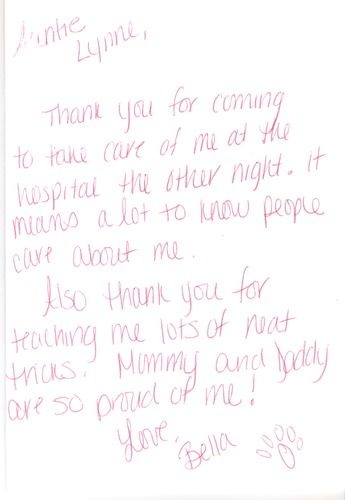 Auntie
Lynne,
Thank you for coming
to take care of me at the
hospital the other night. it
means a lot to know people
care about me.
Also thank you for
teaching me lots of neat
tricks. Mommy and Daddy
are so proud of me!
Love,
Bella